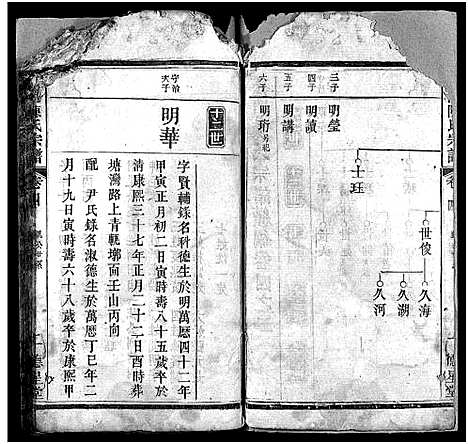 陳氏宗譜
卷四
世俊
久海
久湖
久河
士玨
三子
明瑩
四子
明讀
五子
明講
六子
明珩
十三世
守治
次子
明華
字賢輔錄名科德生於明萬曆四十二年
甲寅正月初二日寅時壽八十五歲卒於
清康熙三十七年正月二十二日酉時葬
塘灣路上青甎墎面壬山丙向
配 尹氏錄名淑德生於萬曆丁巳年二
月十九日寅時壽六十八歲卒於康熙甲
陳氏宗譜
卷四